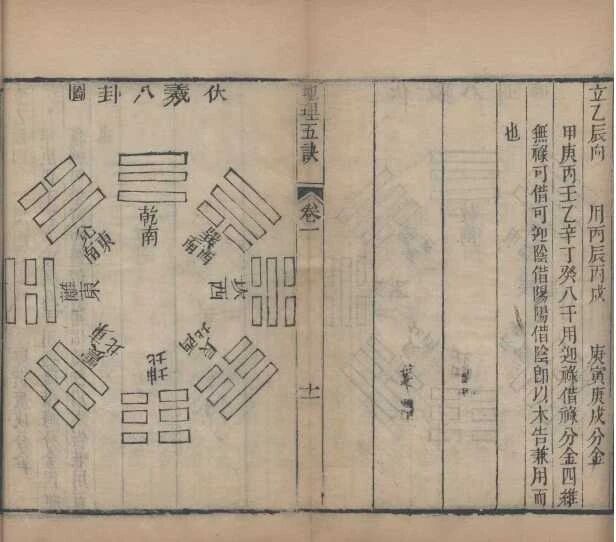 立乙辰向 用丙辰丙戌 庚寅庚戌分金
甲庚丙壬乙辛丁癸八干用迎祿借祿分金四維
無祿可借可迎陰借陽陽借陰卽以木告兼用而
也
地理五訣
卷一
十一
伏羲八卦圖
乾南
巽西南
坎西
艮西北
坤北
震東北
離東
兌東南